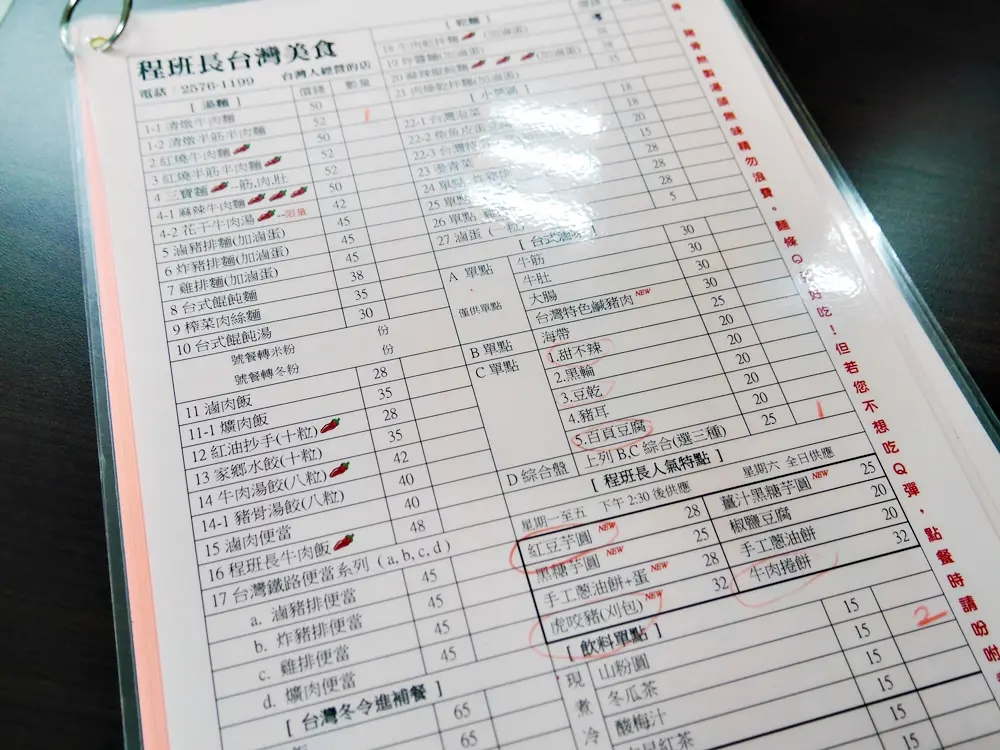 程班長台灣美食
電話：2576-1199 台灣人經營的店
[湯麵] 價錢 數量
1-1 清燉牛肉麵 50
1-2 清燉半筋半肉麵 52 1
2 紅燒牛肉麵 50
3 紅燒半筋半肉麵 52
4 三寶麵--筋.肉.肚 52
4-1 麻辣牛肉麵 50
4-2 花干牛肉湯--限量 42
5 滷豬排麵(加滷蛋) 45
6 炸豬排麵(加滷蛋) 45
7 雞排麵(加滷蛋) 45
8 台式餛飩麵 38
9 榨菜肉絲麵 35
10 台式餛飩湯 30
號餐轉米粉 份
號餐轉冬粉 份
11 滷肉飯 28
11-1 爌肉飯 35
12 紅油抄手(十粒) 28
13 家鄉水餃(十粒) 35
14 牛肉湯餃(八粒) 42
14-1 豬骨湯餃(八粒) 40
15 滷肉便當 40
16 程班長牛肉飯 48
17 台灣鐵路便當系列(a,b,c,d)
a. 滷豬排便當 45
b. 炸豬排便當 45
c. 雞排便當 45
d. 爌肉便當 45
[台灣冬令進補餐]
65
65
[乾麵]
18 牛肉乾拌麵(加滷蛋)
19 炸醬麵(加滷蛋)
20 麻辣
21 肉燥乾拌麵(加滷蛋)
[小菜區]
22-1 台灣泡菜 18
22-2 18
22-3 台灣 20
23 燙青菜 15
24 單點 28
25 單點 28
26 單點 28
27 滷蛋 5
[台式滷味]
A 單點
僅供單點
牛筋 30
牛肚 30
大腸 30
台灣特色鹹豬肉 NEW 30
B 單點
海帶 25
C 單點
1.甜不辣 20
2.黑輪 20
3.豆乾 20
4.豬耳 20
5.百頁豆腐 20
D 綜合盤 上列B,C綜合(選三種) 25 1
[程班長人氣特點]
星期一至五 下午 2:30 後供應 星期六 全日供應
紅豆芋圓 NEW 28 薑汁黑糖芋圓 NEW 25
黑糖芋圓 NEW 25 椒鹽豆腐 20
手工蔥油餅+蛋 NEW 28 手工蔥油餅 20
虎咬豬(刈包) NEW 32 牛肉捲餅 32
[飲料單點]
現煮冷
山粉圓 15
冬瓜茶 15 2
酸梅汁 15
紅茶 15
15
豬骨熬製湯頭無味精勿浪費。麵條Q好好吃！但若您不想吃Q彈，點餐時請吩咐